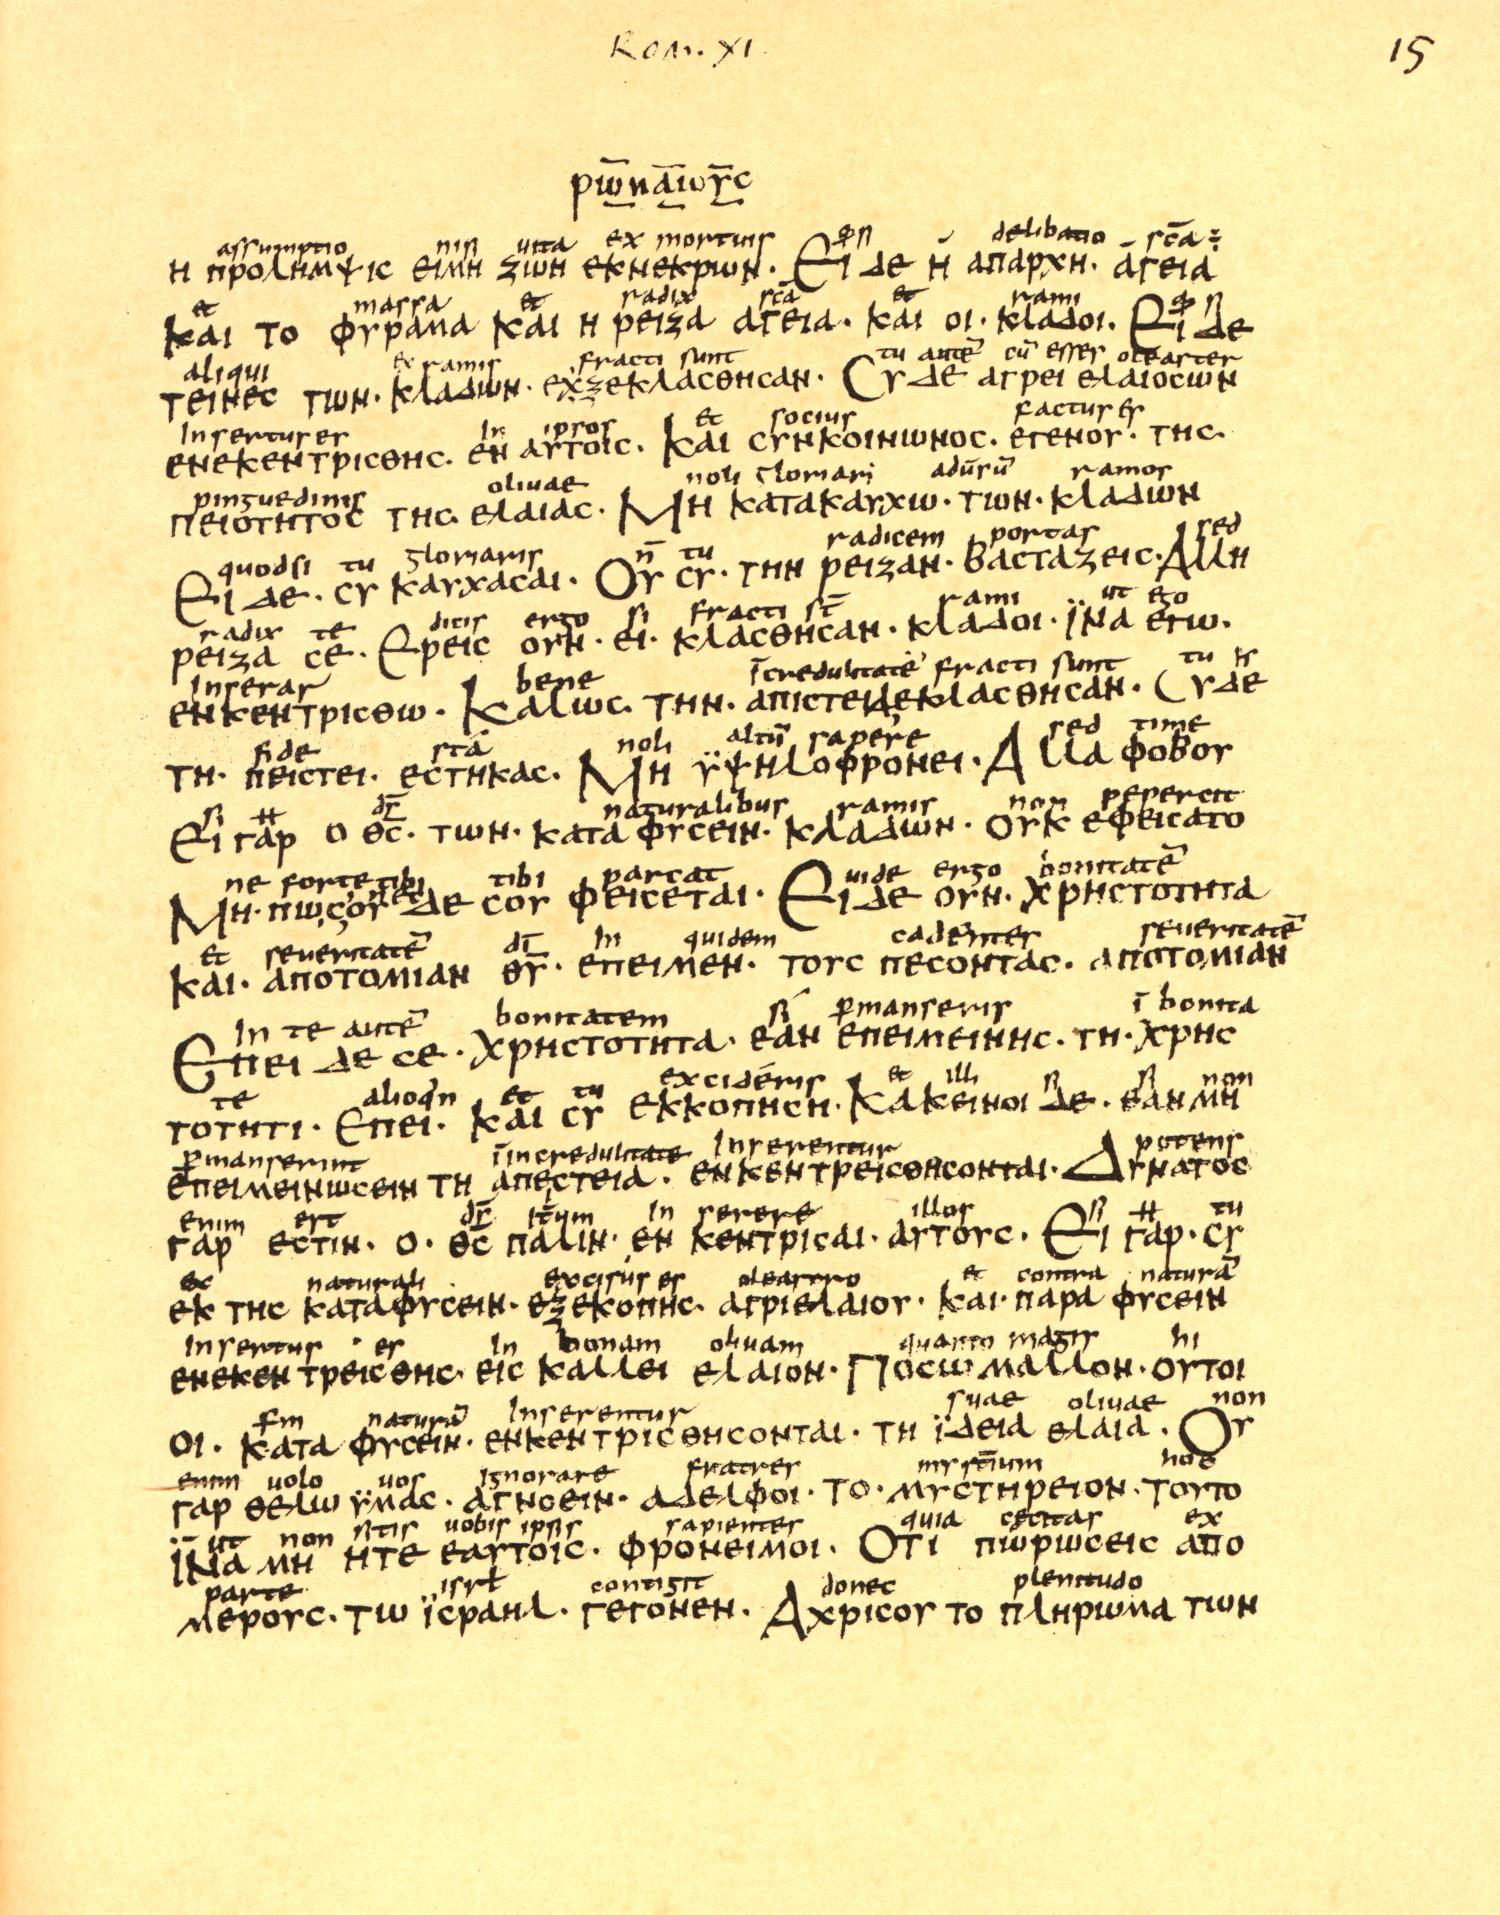 Rom. XI
15
ρωμαιουc
assumptio nisi uita ex mortuis delibatio scā
Η προλημψιc ειμη ζωη εκνεκρων· Ει δε ἡ απαρχη· ἁγεια
et massa et radix scā et rami
και το φυραμα και η ρειζα αγεια· και οι· κλαδοι· Ει δε
aliqui ex ramis fracti sunt tu autē cū esses oleaster
τεινεc των· κλαδων· εχξεκλαcθηcαν· Cυ δε αγρει ελαιοcων
Insertus es In ipsos et socius factus es
ενεκεντριcθηc· εν αυτοιc· και cυνκοινωνοc· εγενου· τηc·
pinguedinis oliuae noli gloriari adūsū ramos
πειοτητοc τηc· ελαιαc· Μη κατακαυχω· των· κλαδων
quodsi tu gloriaris n̄ tu radicem portas sed
Ει δε· cυ καυχαcαι· Ου cυ· την ρειζαν· βαcταζειc· Αλλη
radix te dicis ergo si fracti st̄ rami ut ego
ρειζα cε· Ερειc ουν· ει· κλαcθηcαν· κλαδοι· ϊνα εγω·
Inserar bene īcredulitatē fracti sunt tu
ενκεντριcθω· Καλωc· τηη· απιcτειδεκλαcθηcαν· Cυ δε
fide stā noli altū sapere sed time
τη· πειcτει· εcτηκαc· Μη ϋψηλοφρονει· Αλλα φοβου
si d̄s naturalibus ramis non pepercit
Ει γαρ ο θ̄c· των· κατα φυcειν· κλαδων· ουκ εφειcατο
ne forte tibi nec tibi parcat uide ergo bonitatē
Μη· πωc ου δε cου φειcεται· Ει δε ουν· χρηcτοτητα
et seueritatē dī In quidem cadentes seueritatē
και· αποτομιαν θ̄υ· επειμεν· τουc πεcονταc· αποτομιαν
In te autē bonitatem si pmanseris ī bonita
Επει δε cε· χρηcτοτητα· εαν επειμεινηc· τη· χρηc
te alioqn et tu excideris et illi si non
τοτητι· Επει· και cυ εκκοπηcη· Κακεινοι δε· εαν μη
pmanserint īincredulitate Inserentur potens
επειμεινωcειν τη απεcτεια· ενκεντρειcθηcονται· Δυνατοc
enim est d̄s itum In serere illos si tu
γαρ εcτιν· ο· θ̄c παλιν· εν κεντριcαι· αυτουc· Ει γαρ· cυ
ex naturali excisus es oleastro et contra naturā
εκ τηc καταφυcειν· εξεκοπηc· αγριελαιου· και· παρα φυcειν
Insertus es In bonam oliuam quanto magis hi
ενεκεν τρειcθηc· ειc καλλει ελαιον· Ποcω μαλλον· ουτοι
naturā Inserentur suae oliuae non
οι· κατα φυcειν· ενκεντριcθηcονται· τη ϊδεια ελαια· Ου
enim uolo uos ignorare fratres
γαρ θελω ϋμαc· αγνοειν· αδελφοι· το· μυcτηρειον· τουτο
ut non sitis uobis ipsis sapientes quia cecitas ex
ϊνα μη ητε εαυτοιc· φρονειμοι· Οτι πωρωcειc απο
parte isrł contigit donec plenitudo
μερουc· τω ϊcραηλ· γεγονεν· Αχριcου το πληρωμα των